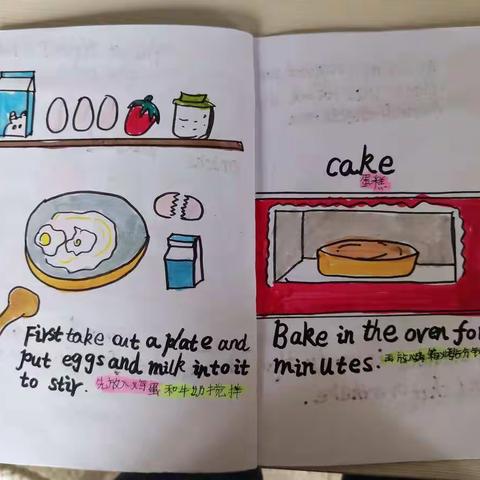 First take out a plate and
put eggs and milk into it
to stir. 先放入鸡蛋和牛奶搅拌
cake
蛋糕
Bake in the oven for
minutes.